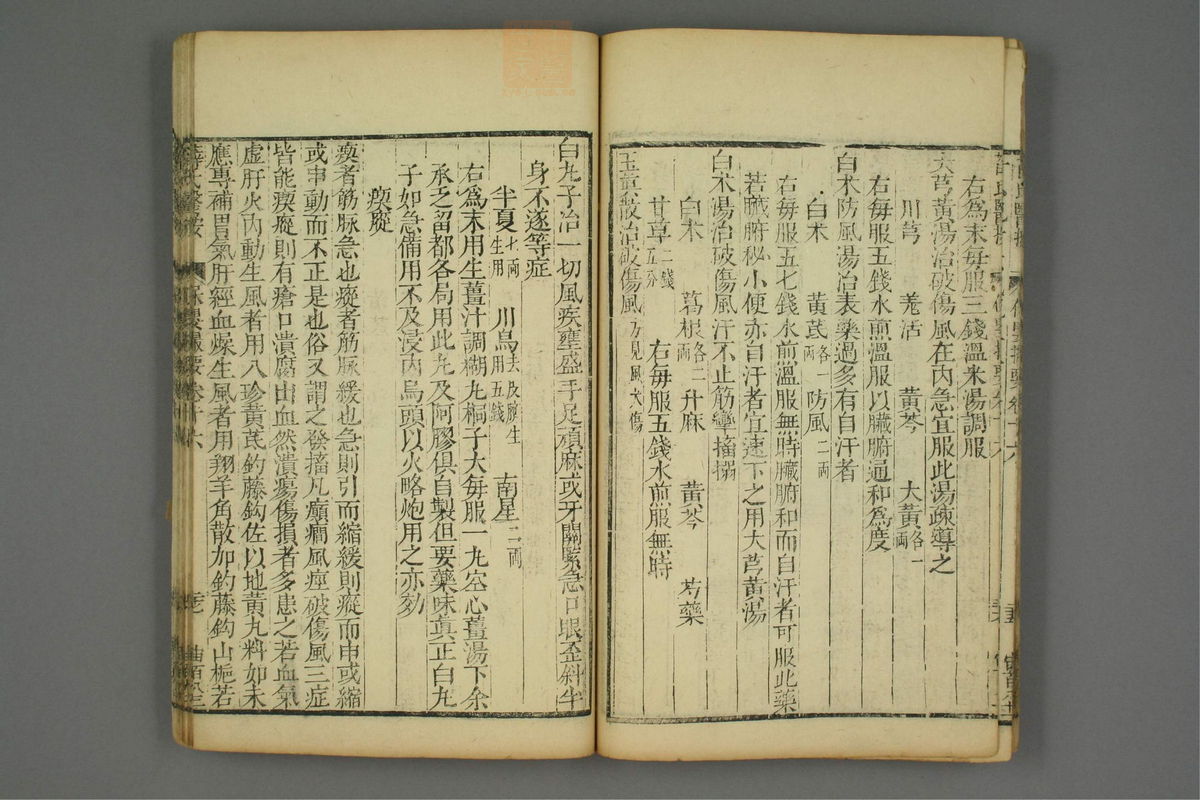 右爲末每服三錢溫米湯調服
大芎黃湯治破傷風在內急宜服此湯疎導之
川芎 羌活 黃芩 大黃各一兩
右每服五錢水煎溫服以臟腑通和爲度
白朮防風湯治表藥過多有自汗者
白朮 黃芪各一兩 防風二兩
右每服五七錢水煎溫服無時臟腑和而自汗者可服此藥
若臟腑秘小便赤自汗者宜速下之用大芎黃湯
白朮湯治破傷風汗不止筋攣搐搦
白朮 葛根各二兩 升麻 黃芩 芍藥
甘草二錢五分 右每服五錢水煎服無時
玉眞散治破傷風方見風犬傷
白丸子治一切風疾壅盛手足頑麻或牙關緊急口眼歪斜半
身不遂等症
半夏七兩生用 川烏去皮臍生用五錢 南星二兩
右爲末用生薑汁調糊丸桐子大每服一丸空心薑湯下余
承之留都各局用此丸及阿膠俱自製但要藥味眞正白丸
子如急備用不及浸內烏頭以火略炮用之亦効
瘈瘲
瘈者筋脉急也瘲者筋脉緩也急則引而縮緩則瘲而申或縮
或申動而不正是也俗又謂之發搐凡癲癇風痙破傷風三症
皆能瘈瘲則有瘡口潰腐出血然潰瘍傷損者多患之若血氣
虛肝火內動生風者用八珍黃芪釣藤鈎佐以地黃丸料如未
應專補胃氣肝經血燥生風者用翔羊角散加釣藤鈎山梔若
薛氏醫按 卷十六